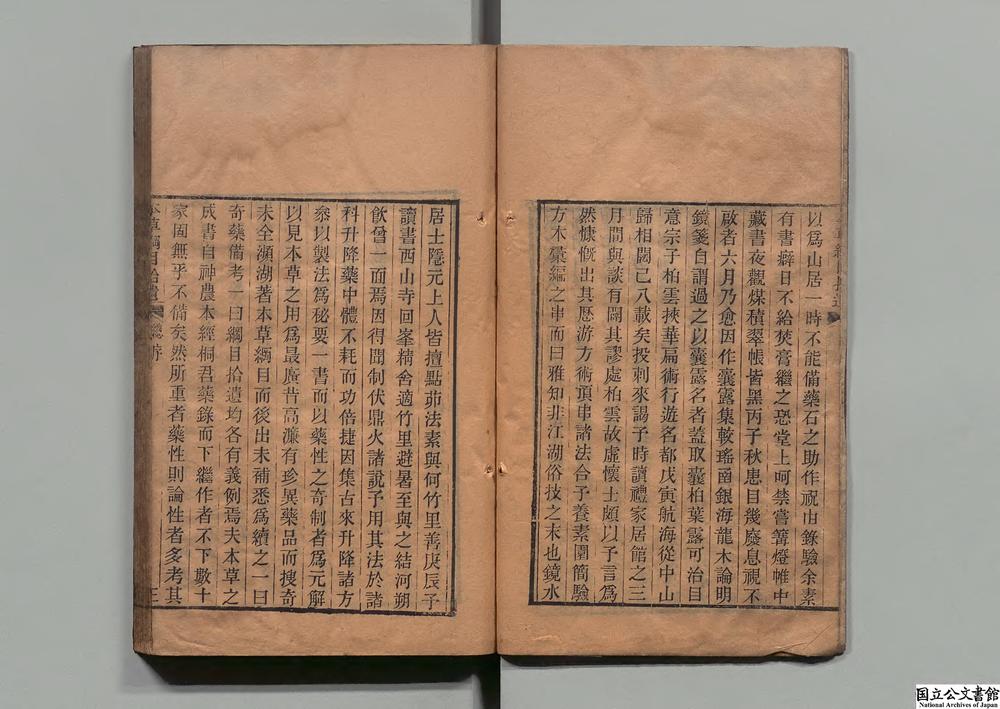 以爲山居一時不能備藥石之助作祝由錄驗余素
有書癖日不給焚膏繼之恐堂上呵禁嘗篝燈帷中
藏書夜觀煤積翠帳皆黑丙子秋患目幾廢息視不
啟者六月乃愈因作囊露集較瑤函銀海龍木論明
鏡箋自謂過之以囊露名者蓋取囊柏葉露可治目
意宗子柏雲挾華扁術行遊名都戊寅航海從中山
歸相闊已八載矣投刺來謁予時讀禮家居館之三
月間與談有闢其謬處柏雲故虛懷士頗以予言爲
然慷慨出其歷游方術頂串諸法合予養素園簡驗
方木彙編之串而曰雅知非江湖俗技之末也鏡水
居士隱元上人皆擅點茆法素與何竹里善庚辰予
讀書西山寺回峯精舍適竹里避暑至與之結河朔
飲曾一面焉因得聞制伏鼎火諸說予用其法於諸
科升降藥中體不耗而功倍捷因集古來升降諸方
叅以製法爲秘要一書而以藥性之奇制者爲元解
以見本草之用爲最廣昔高濂有珍異藥品而搜奇
未全瀕湖著本草綱目而後出未補悉爲續之一曰
奇藥備考一曰綱目拾遺均各有義例焉夫本草之
成書自神農本經桐君藥錄而下繼作者不下數十
家固無乎不備矣然所重者藥性則論性者多考其
本草綱目拾遺
国立公文書館
National Archives of Japan